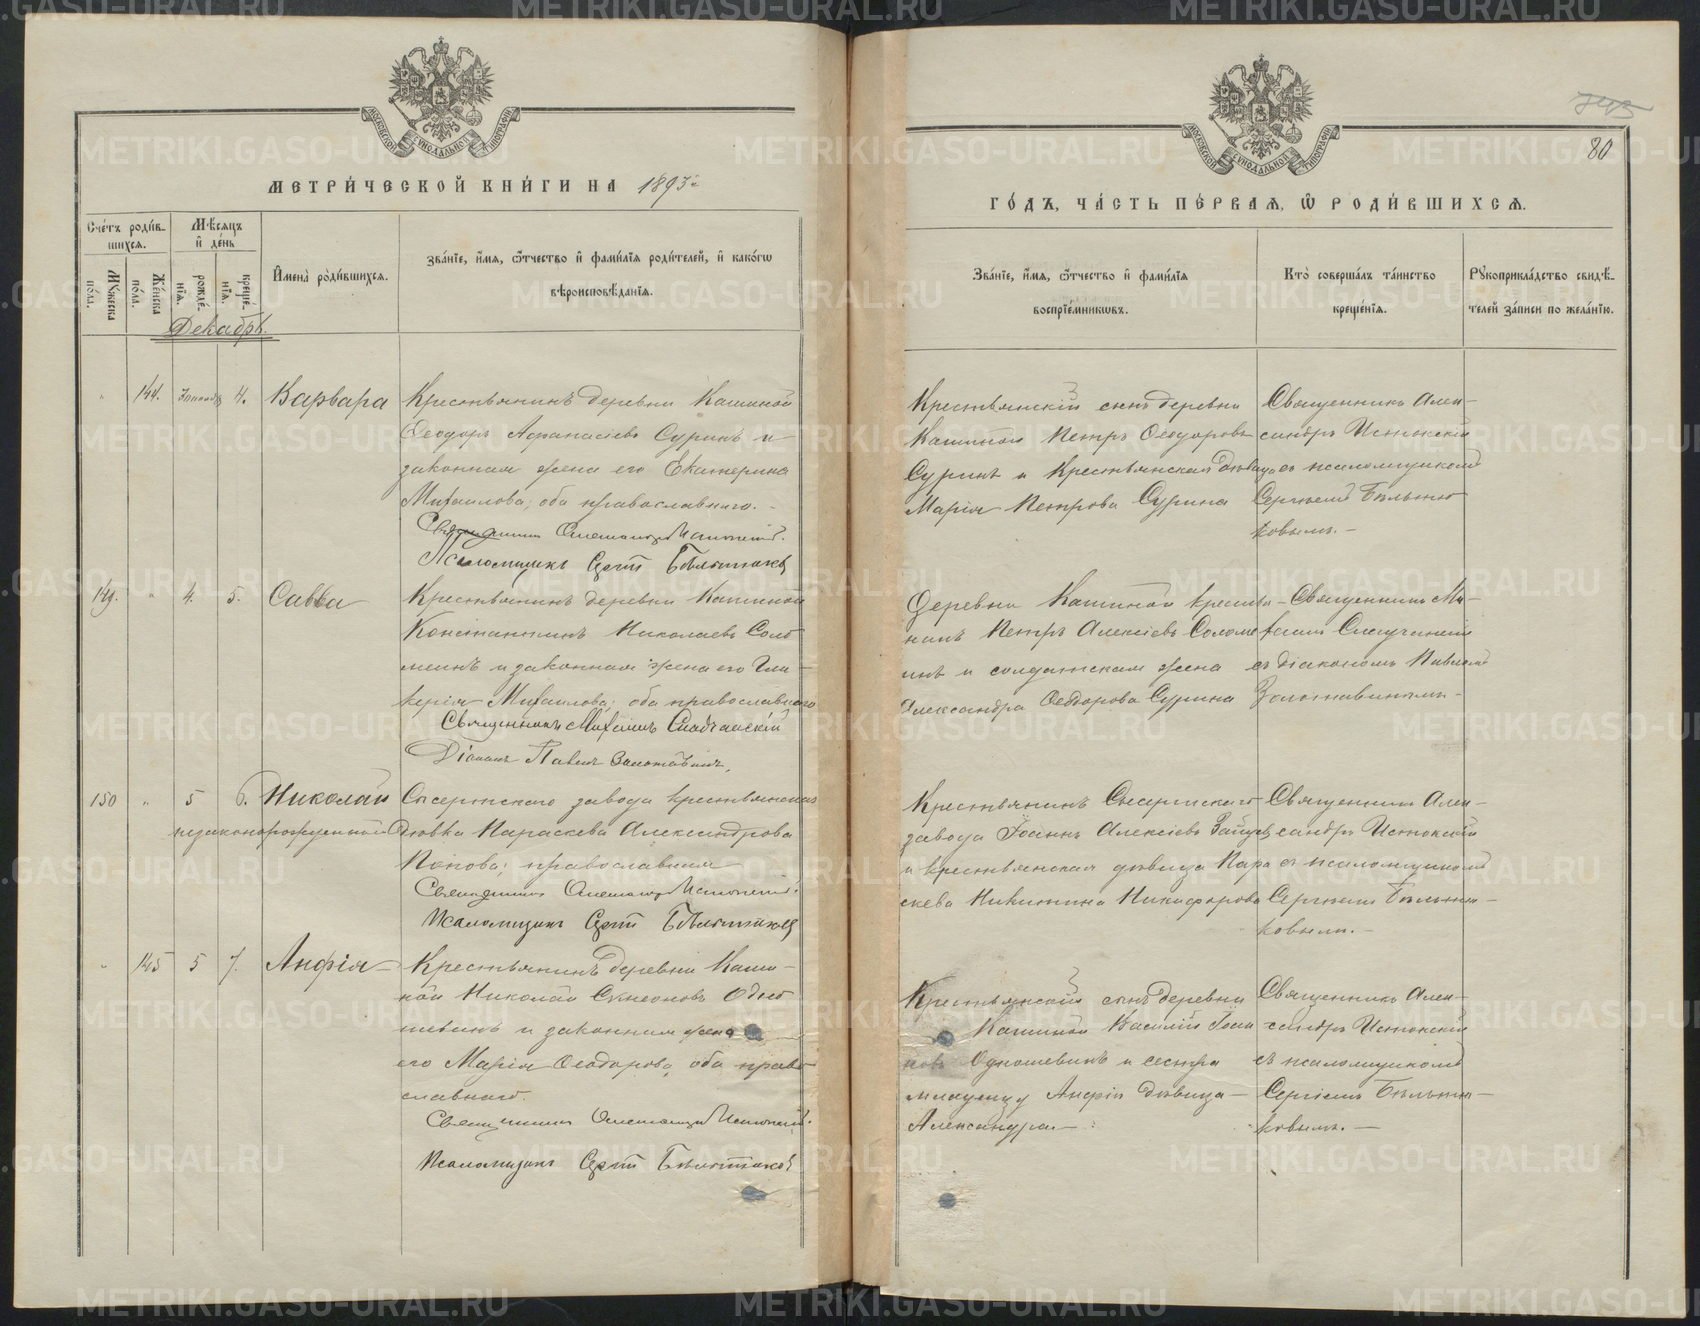 МОСКОВСКОЙ СУНОДАЛЬНОЙ ТИПОГРАФІИ
МЕТРИ́ЧЕСКОЙ КНИ́ГИ НА 1893й
Сче́тъ роди́в-
шихсѧ.
Му́жеска
по́ла.
Же́нска
по́ла.
Мѣ́сѧцъ
и҆ де́нь
рожде́-
нїѧ.
креще́-
нїѧ.
И҆мена̀ роди́вшихсѧ.
Зва́нїе, и҆́мѧ, ѻ҆́тчество и҆ фами́лїѧ роди́телей, и҆ како́гѡ
вѣроисповѣ́данїѧ.
Декабрь.
" 144. 4. Варвара
Крестьянинъ деревни Кашиной
Ѳеодоръ Аѳанасіевъ Суринъ и
законная жена его Екатерина
Михаилова, оба православнаго.
Священникъ Александръ Истокскій.
Псаломщикъ Сергій Бѣльтюковъ
149. " 4. 5. Савва
Крестьянинъ деревни Кашиной
Константинъ Николаевъ Соло
меинъ и законная жена его Гли-
керія Михаилова; оба православнаго
Священникъ Михаилъ
Діаконъ Павелъ Золотавинъ.
150 " 5 6. Николай
незаконорожденный
Сысертскаго завода крестьянская
дѣвка Параскева Александрова
Попова; православная
Священникъ Александръ Истокскій.
Псаломщикъ Сергій Бѣльтюковъ
" 145 5 7. Анфія
Крестьянинъ деревни Каши-
ной Николай Симеоновъ Одно
шевинъ и законная жена
его Марія Ѳеодорова, оба право
славнаго.
Священникъ Александръ Истокскій.
Псаломщикъ Сергій Бѣльтюковъ
МОСКОВСКОЙ СУНОДАЛЬНОЙ ТИПОГРАФІИ
80
ГО́ДЪ, ЧА́СТЬ ПЕ́РВАѦ, Ѡ҆ РОДИ́ВШИХСѦ.
Зва́нїе, и҆́мѧ, ѻ҆́тчество и҆ фами́лїѧ
воспрїе́мникѡвъ.
Кто̀ соверша́лъ та́инство
креще́нїѧ.
Рꙋкоприкла́дство свидѣ́-
телей за́писи по жела́нїю.
Крестьянскій сынъ деревни
Кашиной Петръ Ѳеодоровъ
Суринъ и крестьянская дѣвица
Марія Петрова Сурина
Священникъ Алек-
сандръ Истокскій
съ псаломщикомъ
Сергіемъ Бѣльтю-
ковымъ.-
Деревни Кашиной крестья-
нинъ Петръ Алексіевъ Соломе
инъ и солдатская жена
Александра Ѳеодорова Сурина
Священникъ Ми-
хаилъ
съ діакономъ Павломъ
Золотавинымъ.-
Крестьянинъ Сысертскаго
завода Іоаннъ Алексіевъ Зайцевъ
и крестьянская дѣвица Пара
скева Никитина Никифорова
Священникъ Алек-
сандръ Истокскій
съ псаломщикомъ
Сергіемъ Бѣльтю-
ковымъ.-
Крестьянскій сынъ деревни
Кашиной Василій
Одношевинъ и сестра
младенцу Анфіи дѣвица
Александра.-
Священникъ Алек-
сандръ Истокскій
съ псаломщикомъ
Сергіемъ Бѣльтю-
ковымъ.-
METRIKI.GASO-URAL.RU